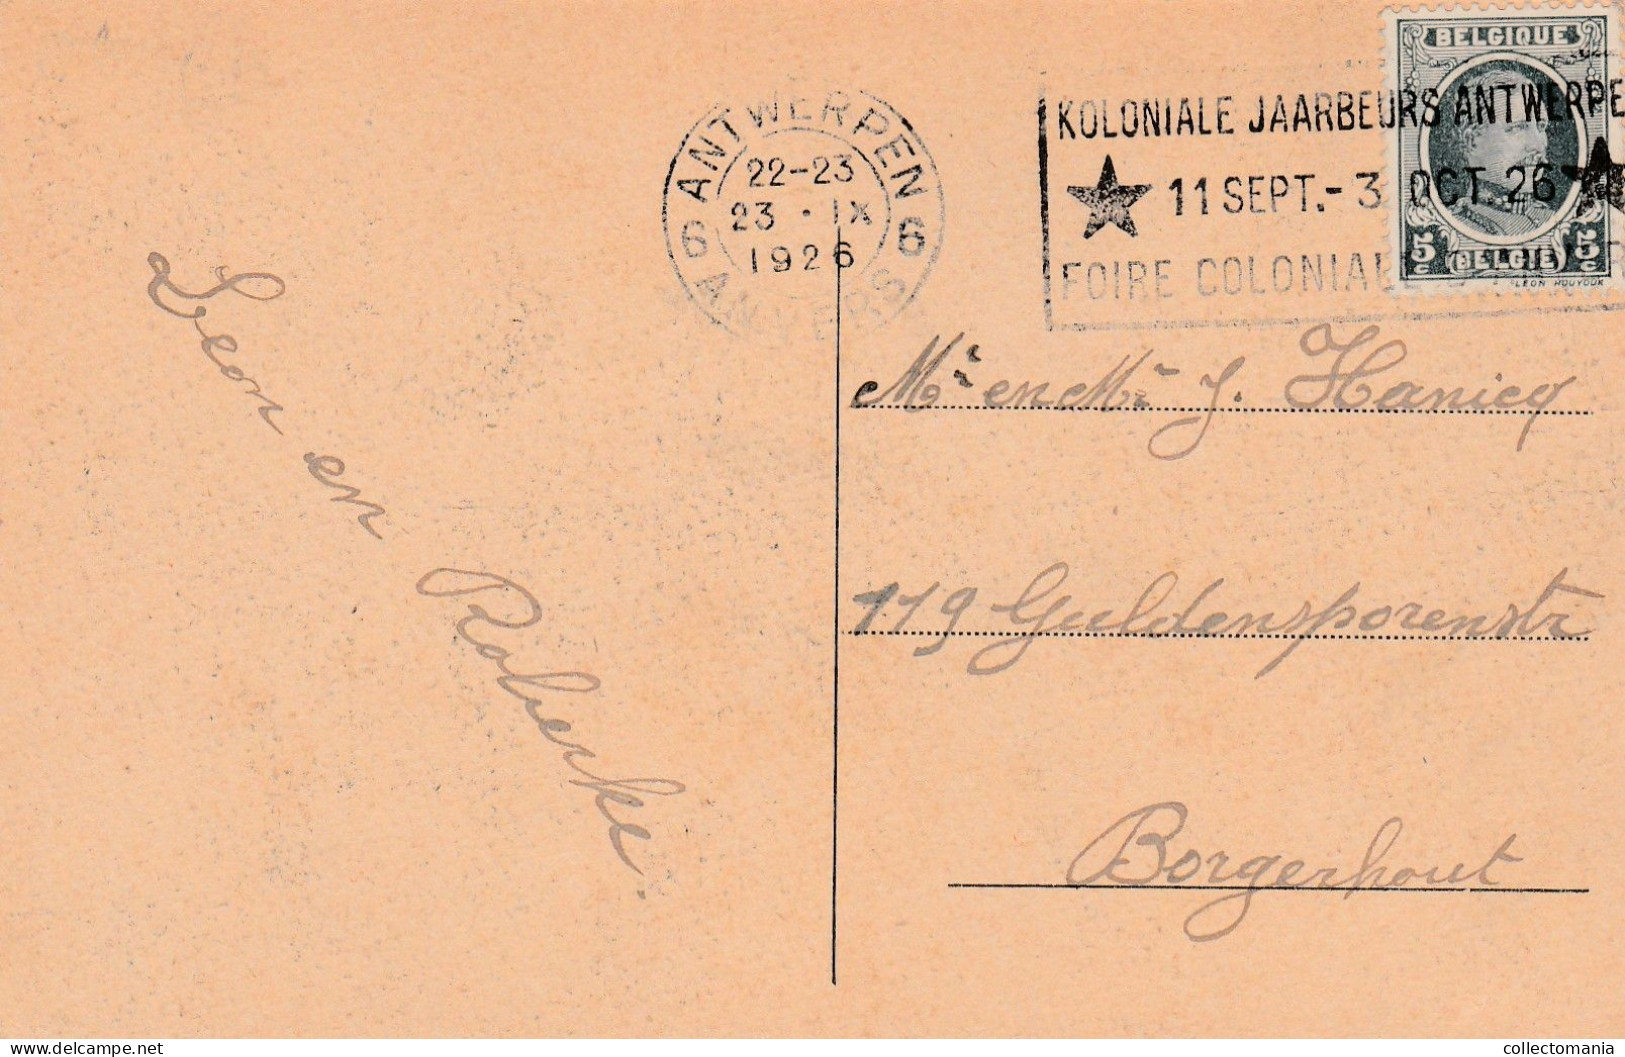 BELGIQUE
KOLONIALE JAARBEURS ANTWERPE
11 SEPT.-3 OCT. 26
FOIRE COLONIALE
5c BELGIË 5c
LÉON HOUYOUX
ANTWERPEN
22-23
23 · IX
1926
6 6
ANVERS
Leon en Roberke.
Mr en Mr J. Hanicq
119 Guldensporenstr
Borgerhout
www.delcampe.net
collectomania